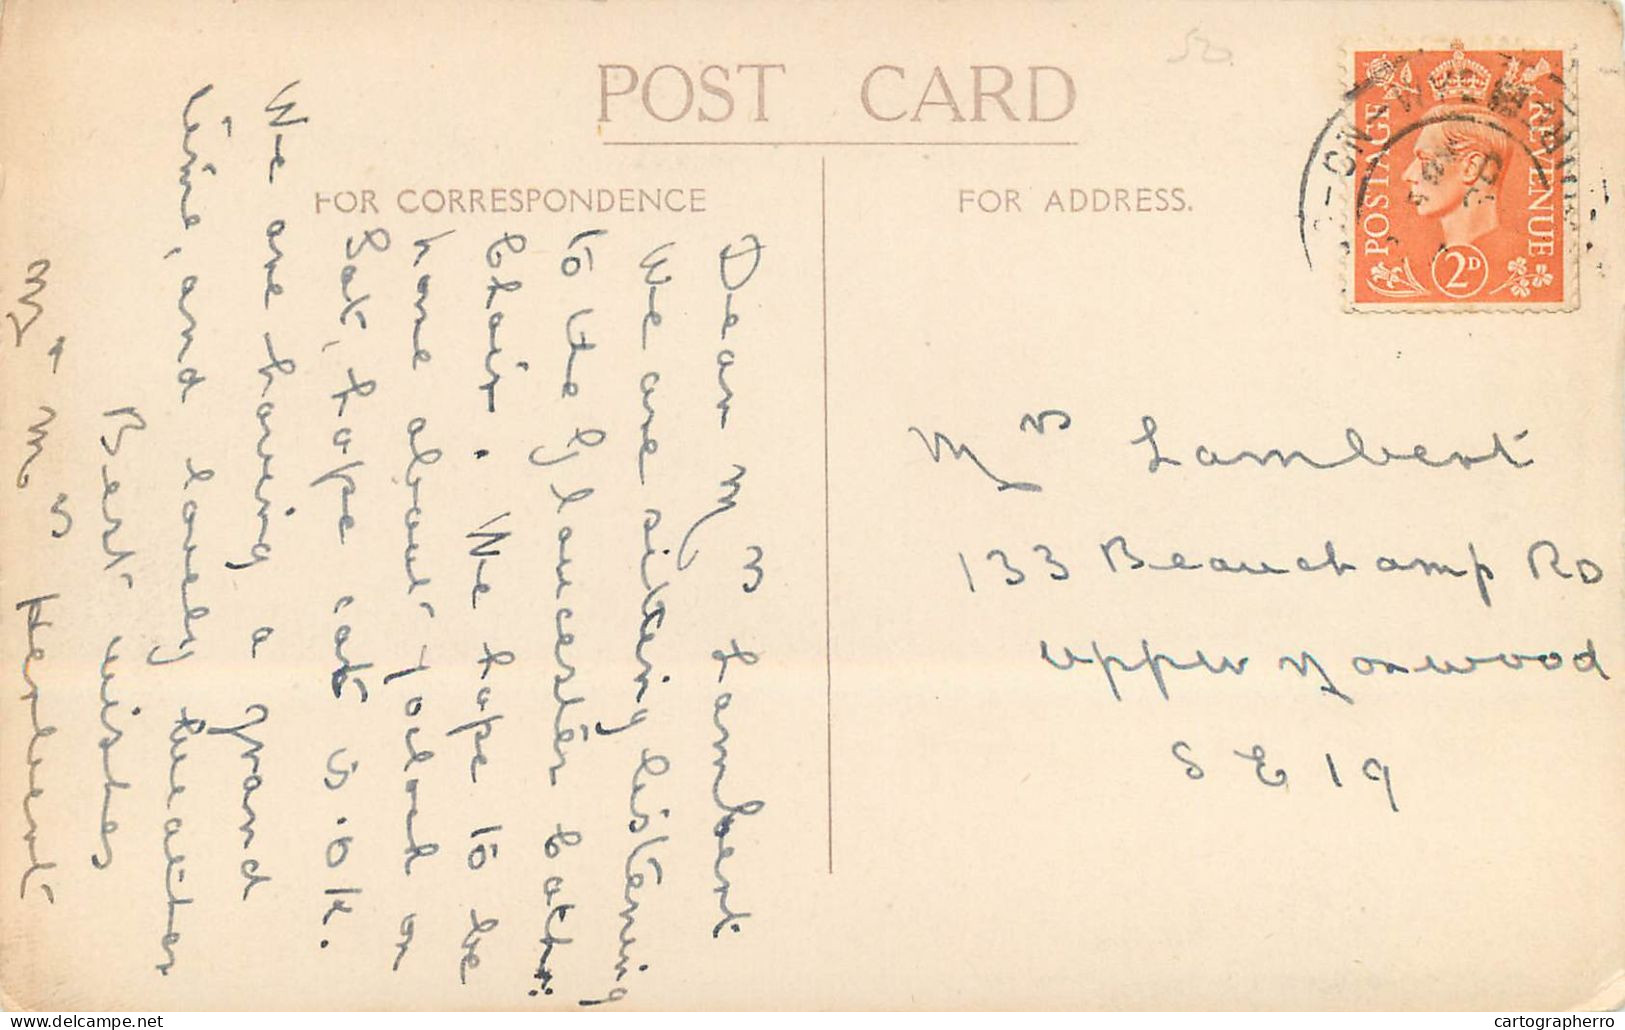 POST CARD
FOR CORRESPONDENCE
FOR ADDRESS.
Dear Mrs Lambert
We are sitting listening
to the Gloucester Cath:
Choir. We hope to be
home about 7 o'clock on
Sat, hope cat is O.K.
We are having a grand
time, and lovely weather
Best wishes
Mr + Mrs Herbert
POSTAGE
REVENUE
2D
Mrs Lambert
133 Beauchamp Rd
Upper Norwood
S E 19
50
cartographerro